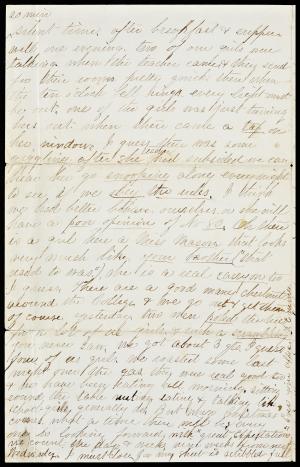 20 min
silent time, after breakfast & supper
well one evening two of our girls were
talking when the teacher came & they send
too their rooms pretty quick then when
the ten o'clock bell rings every light must
be out, one of the girls was just turning
hers out when there came a tap on
her window. I guess there was some
giggling after the had subsided we can
hear her go snooping along every night
to see if we obey the rules. I think
we had better behave ourselves or she will
have a poor opinion of N.
is a girl here a Miss Mason that looks
very much like your brother that
used to was, she is a real
I guess. There are a good many chestnuts
around the College & we go & get them
of course yesterday two men
for a lot of us girls & such a
you never saw, we got about 3 qts I guess
four of us girls we roasted some last
night over the gas they were real good
& we have been eating all morning sitting
round the table eating & talking like
school girls generally do. But when Christmas
comes what a time there will be, every
one is looking forward with great expectations
we count the days & weeks,
Wednesday. I must close for my sheet is filled full